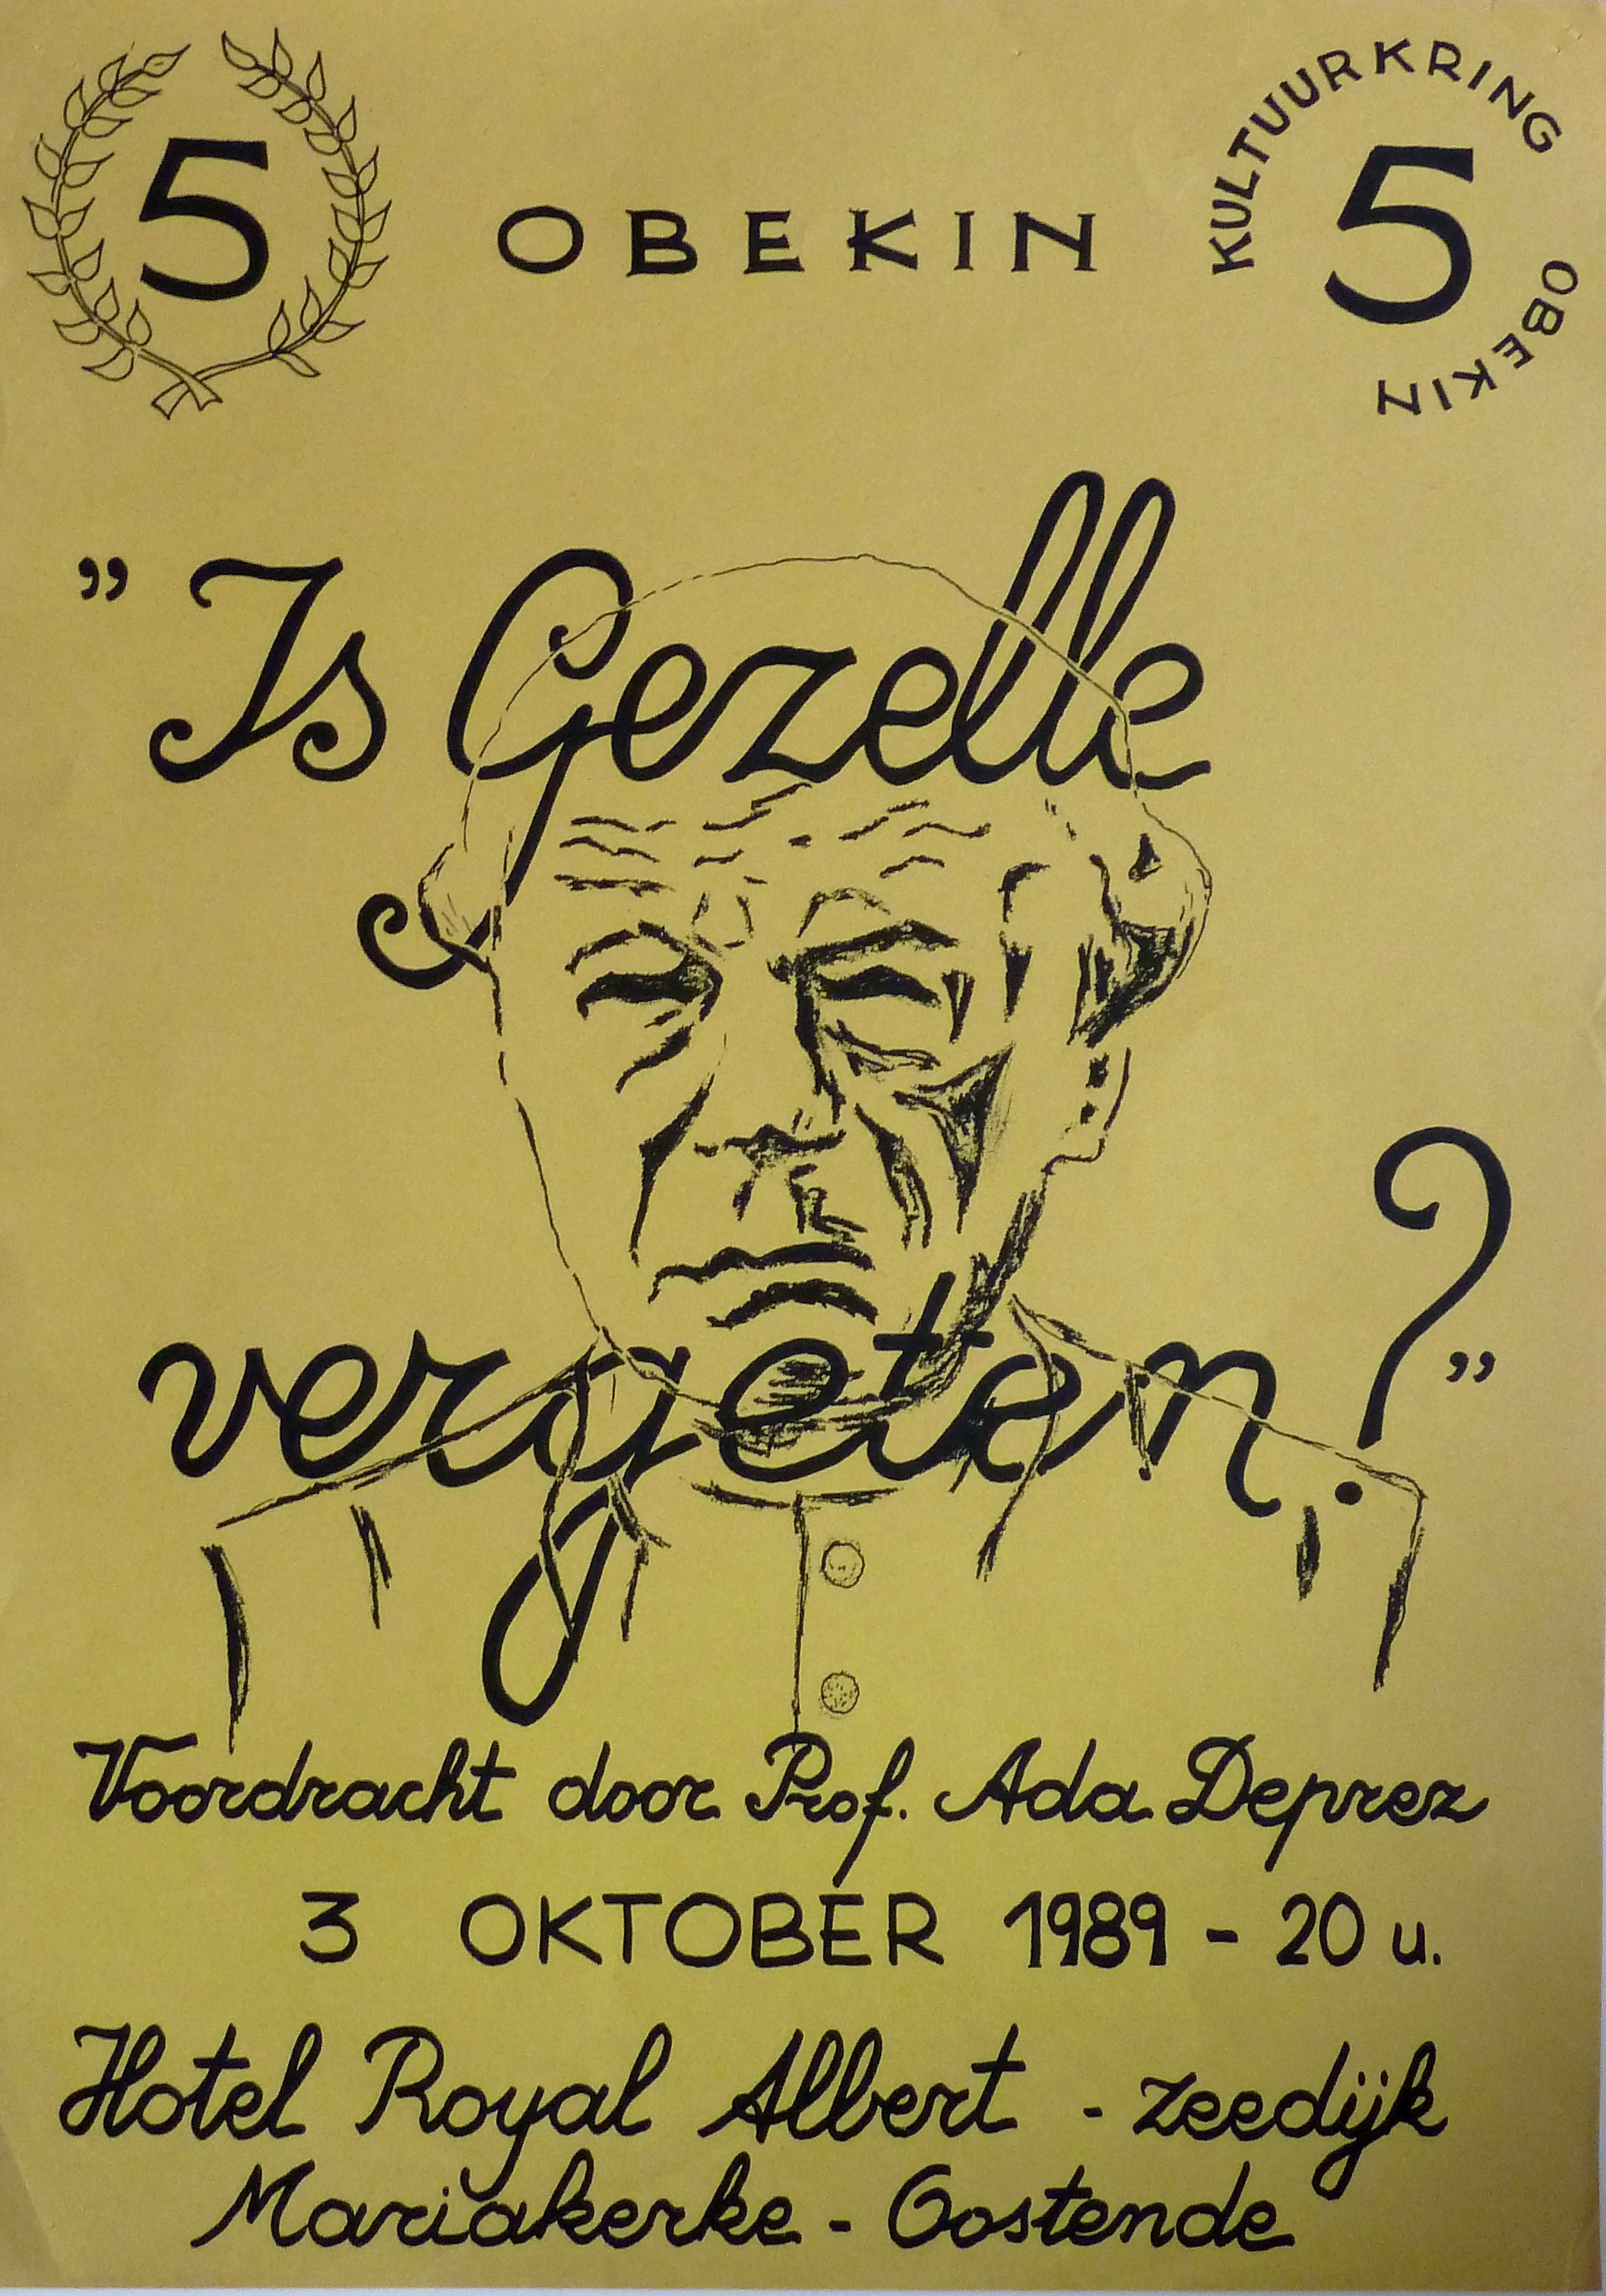 5
OBEKIN
KULTUURKRING OBEKIN
5
” Is Gezelle
vergeten? ”
Voordracht door Prof. Ada Deprez
3 OKTOBER 1989 - 20 u.
Hotel Royal Albert - zeedijk
Mariakerke - Oostende